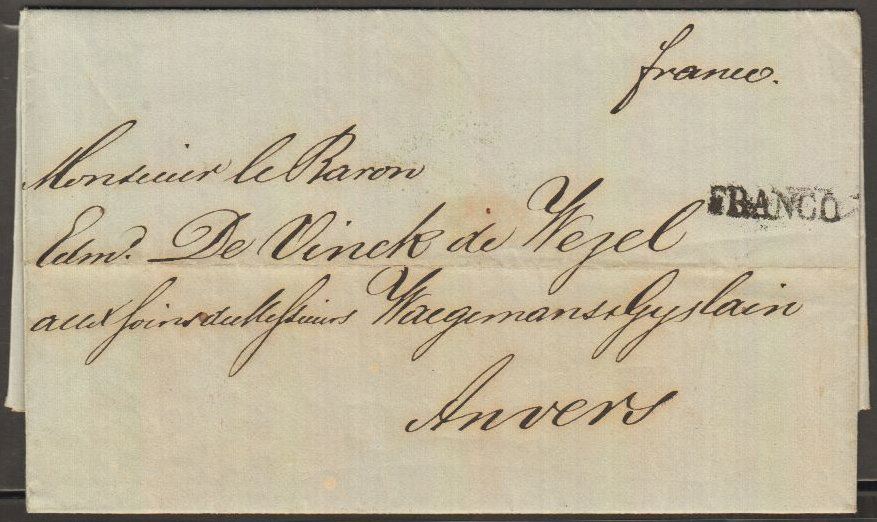 franco.
Monsieur le Baron
FRANCO
Edmd. De Vinck de Wezel
aux soins de Messieurs Waegemans & Gyslain
Anvers